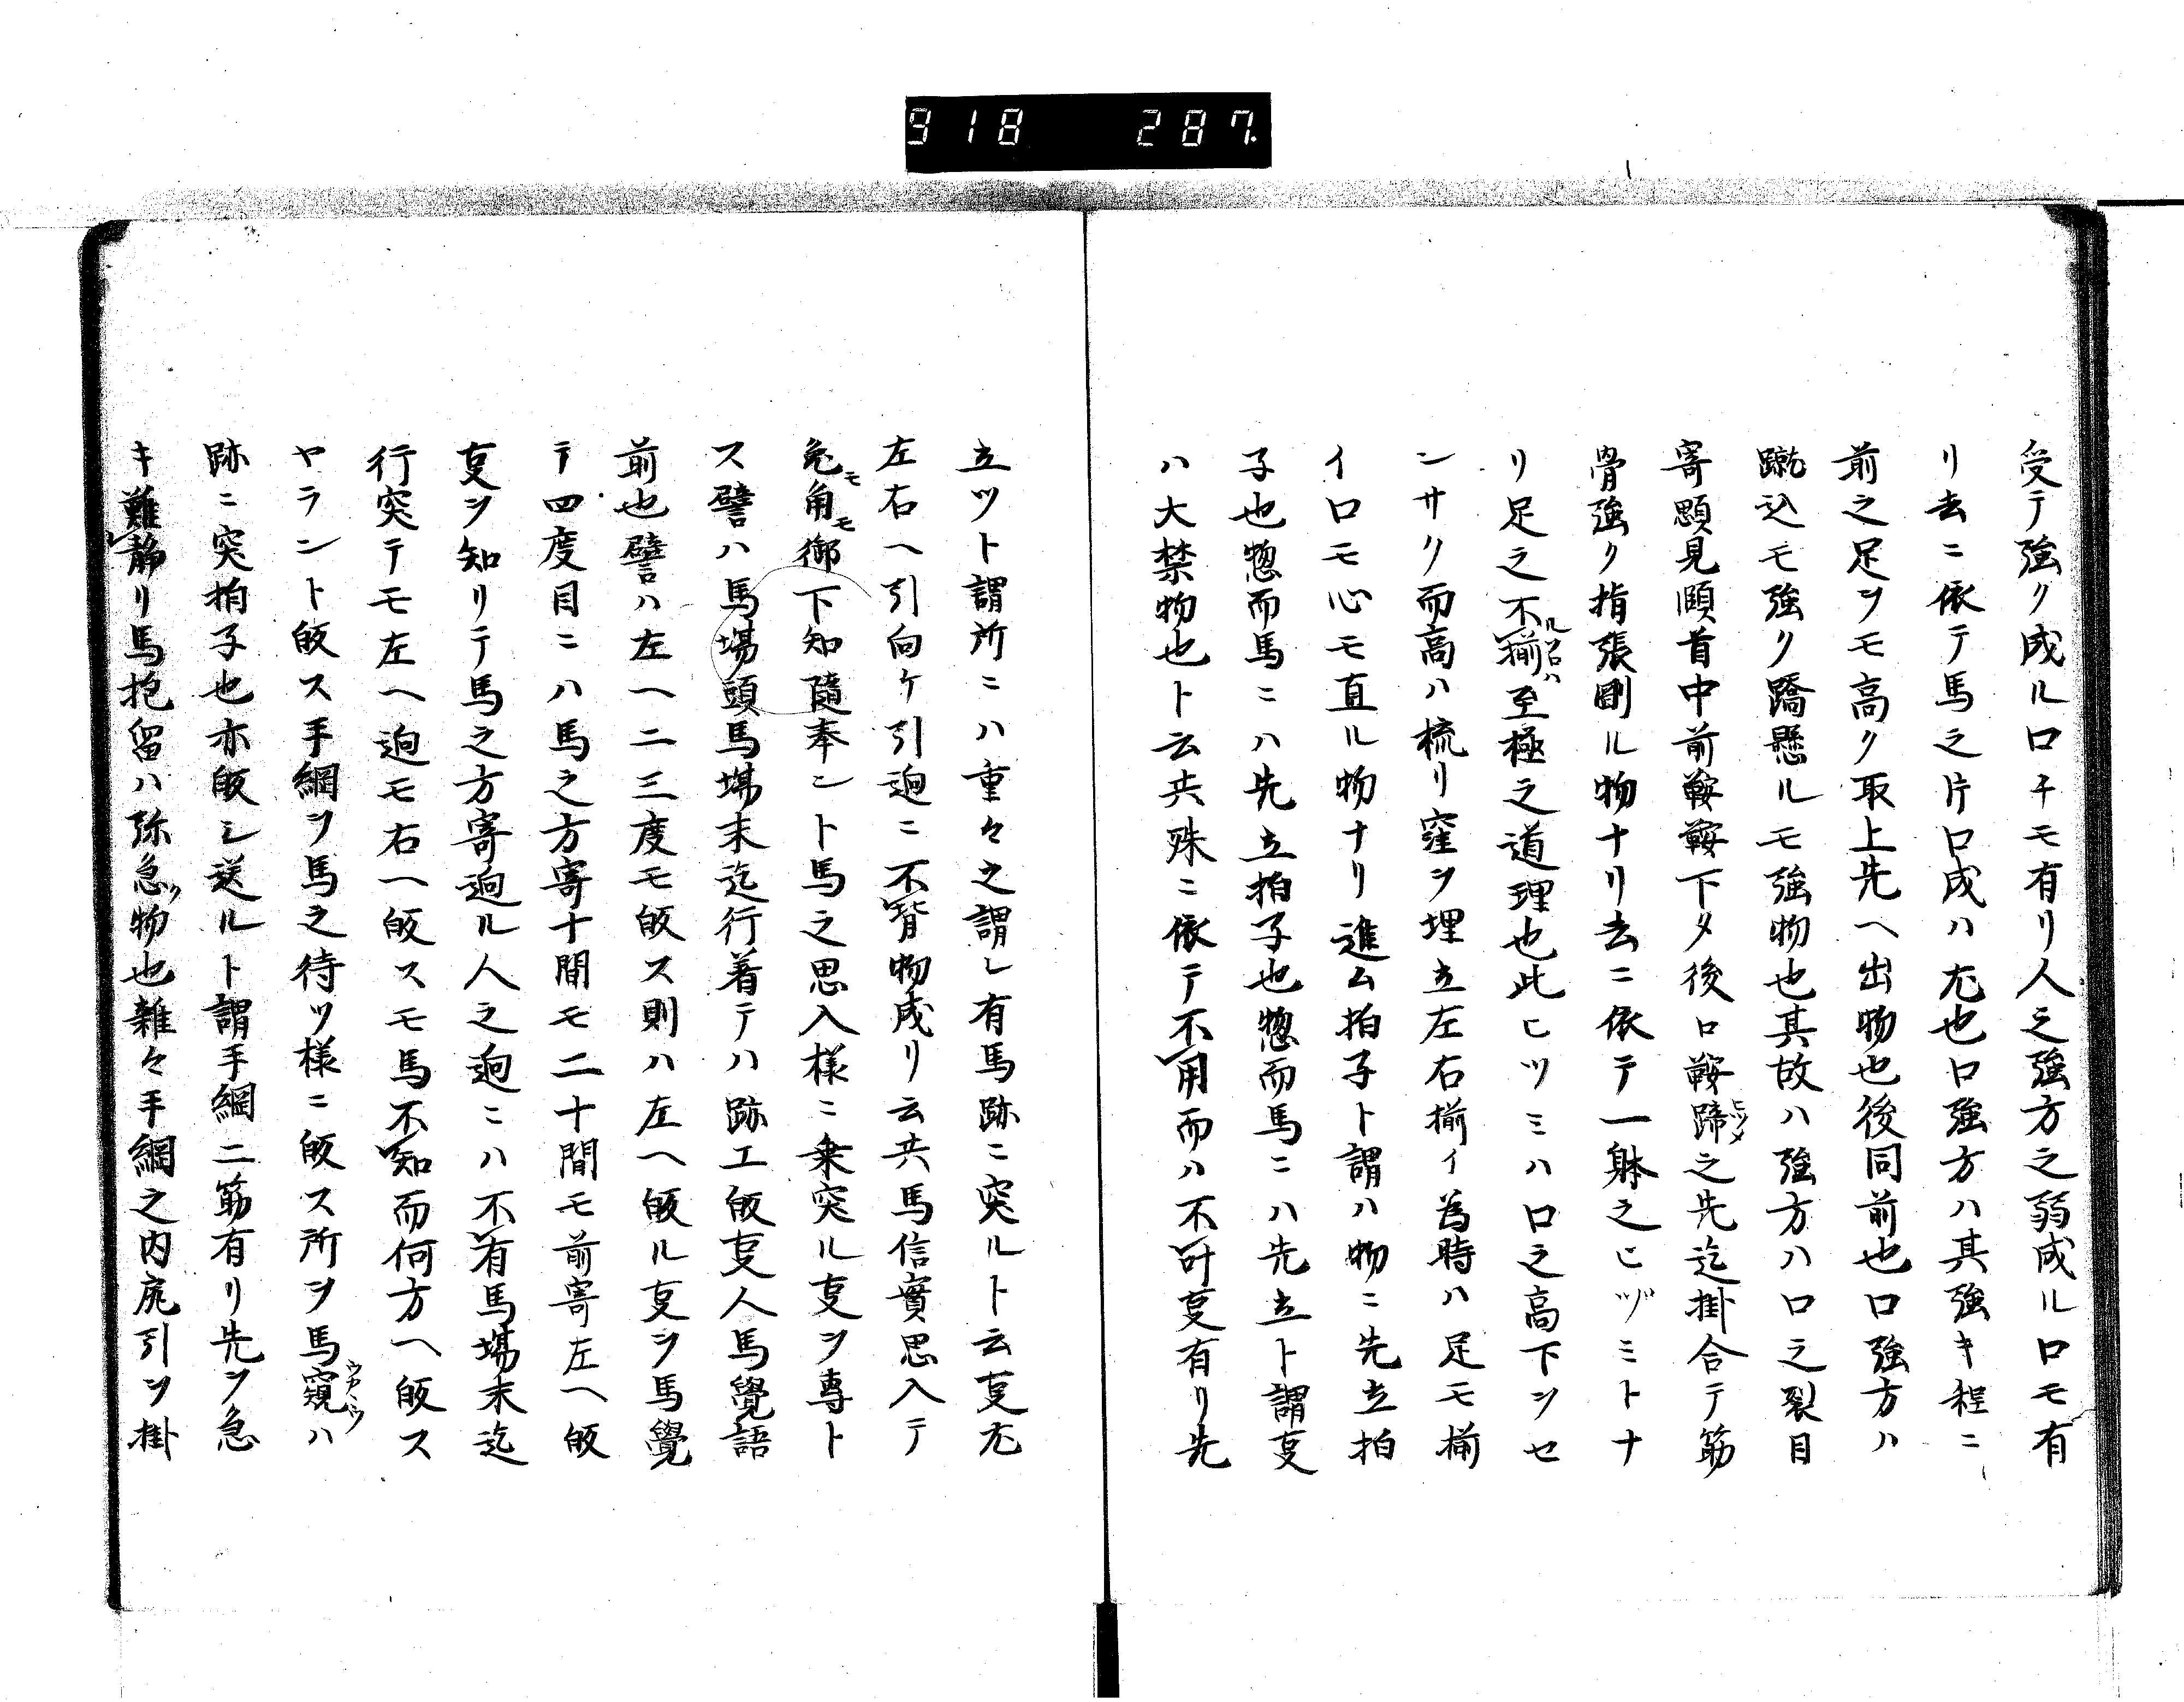 918 287.
受テ強ク成ル口チモ有リ人之強方之弱成ル口モ有
リ去ニ依テ馬之片口成ハ尤也口強方ハ其強キ程ニ
前之足ヲモ高ク取上先ヘ出物也後同前也口強方ハ
蹴込モ強ク蹻懸ルモ強物也其故ハ強方ハ口之裂目
寄顋見頤首中前鞍鞍下タ後口鞍蹄ヒツメ之先迄掛合テ筋
骨強ク指張剛ル物ナリ去ニ依テ一躰之ヒヅミトナ
リ足之不揃ルソロハ至極之道理也此ヒツミハ口之高下ヲセ
ンサク而高ハ梳リ窪ヲ埋立左右揃イ為時ハ足モ揃
イ口モ心モ直ル物ナリ進ム拍子ト謂ハ物ニ先立拍
子也惣而馬ニハ先立拍子也惣而馬ニハ先立ト謂叓
ハ大禁物也ト云共殊ニ依テ不用而ハ不叶叓有リ先
立ツト謂所ニハ重々之謂レ有馬跡ニ突ルト云叓尤
左右ヘ引向ケ引廻ニ不背物成リ云共馬信實思入テ
兔モ角モ御下知隨奉ント馬之思入様ニ乗突ル叓ヲ専ト
ス譬ハ馬場頭馬場末迄行着テハ跡エ皈叓人馬覺語
前也譬ハ左ヘ二三度モ皈ス則ハ左ヘ皈ル叓ヲ馬覺
テ四度目ニハ馬之方寄十間モ二十間モ前寄左ヘ皈
叓ヲ知リテ馬之方寄廻ル人之廻ニハ不有馬場末迄
行突テモ左ヘ廻モ右ヘ皈スモ馬不知而何方ヘ皈ス
ヤラント皈ス手綱ヲ馬之待ツ様ニ皈ス所ヲ馬窺ウカヽツハ
跡ニ突拍子也亦皈シ送ルト謂手綱二筋有リ先ヲ急
キ難静リ馬抱留ハ弥急ク物也雜々手綱之内庑引ヲ掛